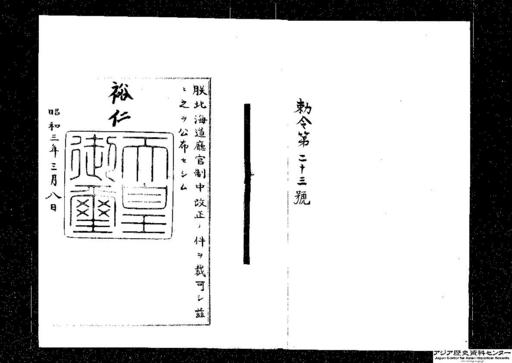 勅令第二十三號
朕北海道廳官制中改正ノ件ヲ裁可シ茲
ニ之ヲ公布セシム
裕仁
天皇
御璽
昭和三年三月八日
アジア歴史資料センター
Japan Center for Asian Historical Records